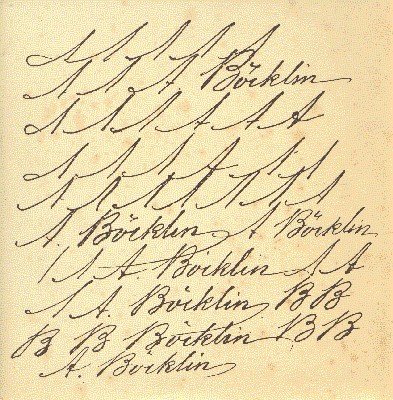 A A A A A
A A A Böcklin
A A A A A A
A A A A A
A A A A A A A
A. Böcklin A Böcklin
A A. Böcklin A A
A A. Böcklin B B
B B Böcklin B B
A. Böcklin